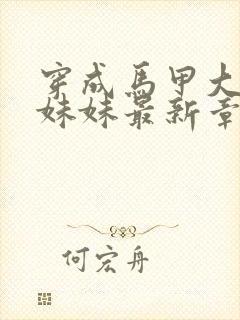 穿成馬甲大
妹妹最新章
何宏舟